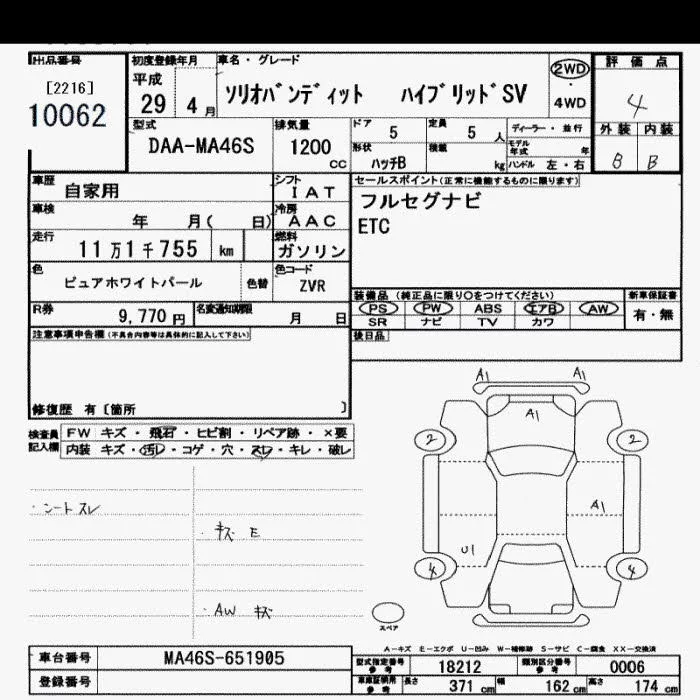 出品番号 初度登録年月 車名・グレード 評価点
[2216] 平成 2WD
10062 29 4月 ソリオバンディット ハイブリッドSV ・ 4
4WD
型式 排気量 ドア 定員 ディーラー・並行 外装 内装
DAA-MA46S 1200 cc 5 5 人 モデル年式 年 B B
形状 ハッチB 積載 kg ハンドル 左・右
車歴 自家用 シフト IAT セールスポイント(正常に機能するものに限ります)
車検 年 月( 日) 冷房 AAC フルセグナビ
走行 11万1千755 km 燃料 ガソリン ETC
色 ピュアホワイトパール 色替 色コード ZVR
装備品 (純正品に限り○をつけてください) 新車保証書
R券 9,770円 名変通知期限 月 日 PS PW ABS エアB AW 有・無
SR ナビ TV カワ
注意事項申告欄(不具合内容等は具体的に記入して下さい) 後日品
修復歴 有〔箇所 〕
検査員記入欄 FW キズ・飛石・ヒビ割・リペア跡・×要
内装 キズ・汚レ・コゲ・穴・スレ・キレ・破レ
A1 A1
A1
2 2
・シートスレ
A1
・キズ E
U1
4 4
・AW キズ
スペア
A-キズ E-エクボ U-凹み W-補修跡 S-サビ C-腐食 XX-交換済
車台番号 MA46S-651905 型式指定番号 参考 18212 類別区分番号 参考 0006
登録番号 車庫証明用 参考 長さ 371 cm 幅 162 cm 高さ 174 cm